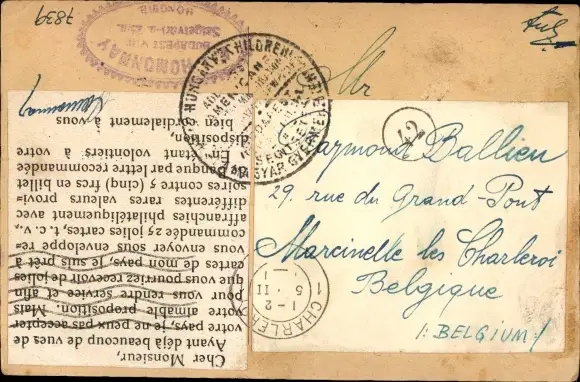 Cher Monsieur,
Ayant déjà beaucoup de vues de
votre pays, je ne peux pas accepter
votre aimable proposition. Mais
pour vous rendre service et afin
que vous pourriez recevoir de jolies
cartes de mon pays, je suis prêt à
vous envoyer sous enveloppe re-
commandée 25 jolies cartes, t. c. v.,
affranchies philatéliquement avec
différentes rares valeurs provi-
soires contre 5 (cinq) frcs en billet
de Banque par lettre recommandée
En étant volontiers à votre
disposition,
bien cordialement à vous
HOMONNAY
BUDAPEST
HONGRIE
7839
Mr
Raymond Ballieu
29. rue du Grand-Pont
Marcinelle les Charleroi
Belgique
/: BELGIUM :/
42
1 CHARLER
1-2
5 · II